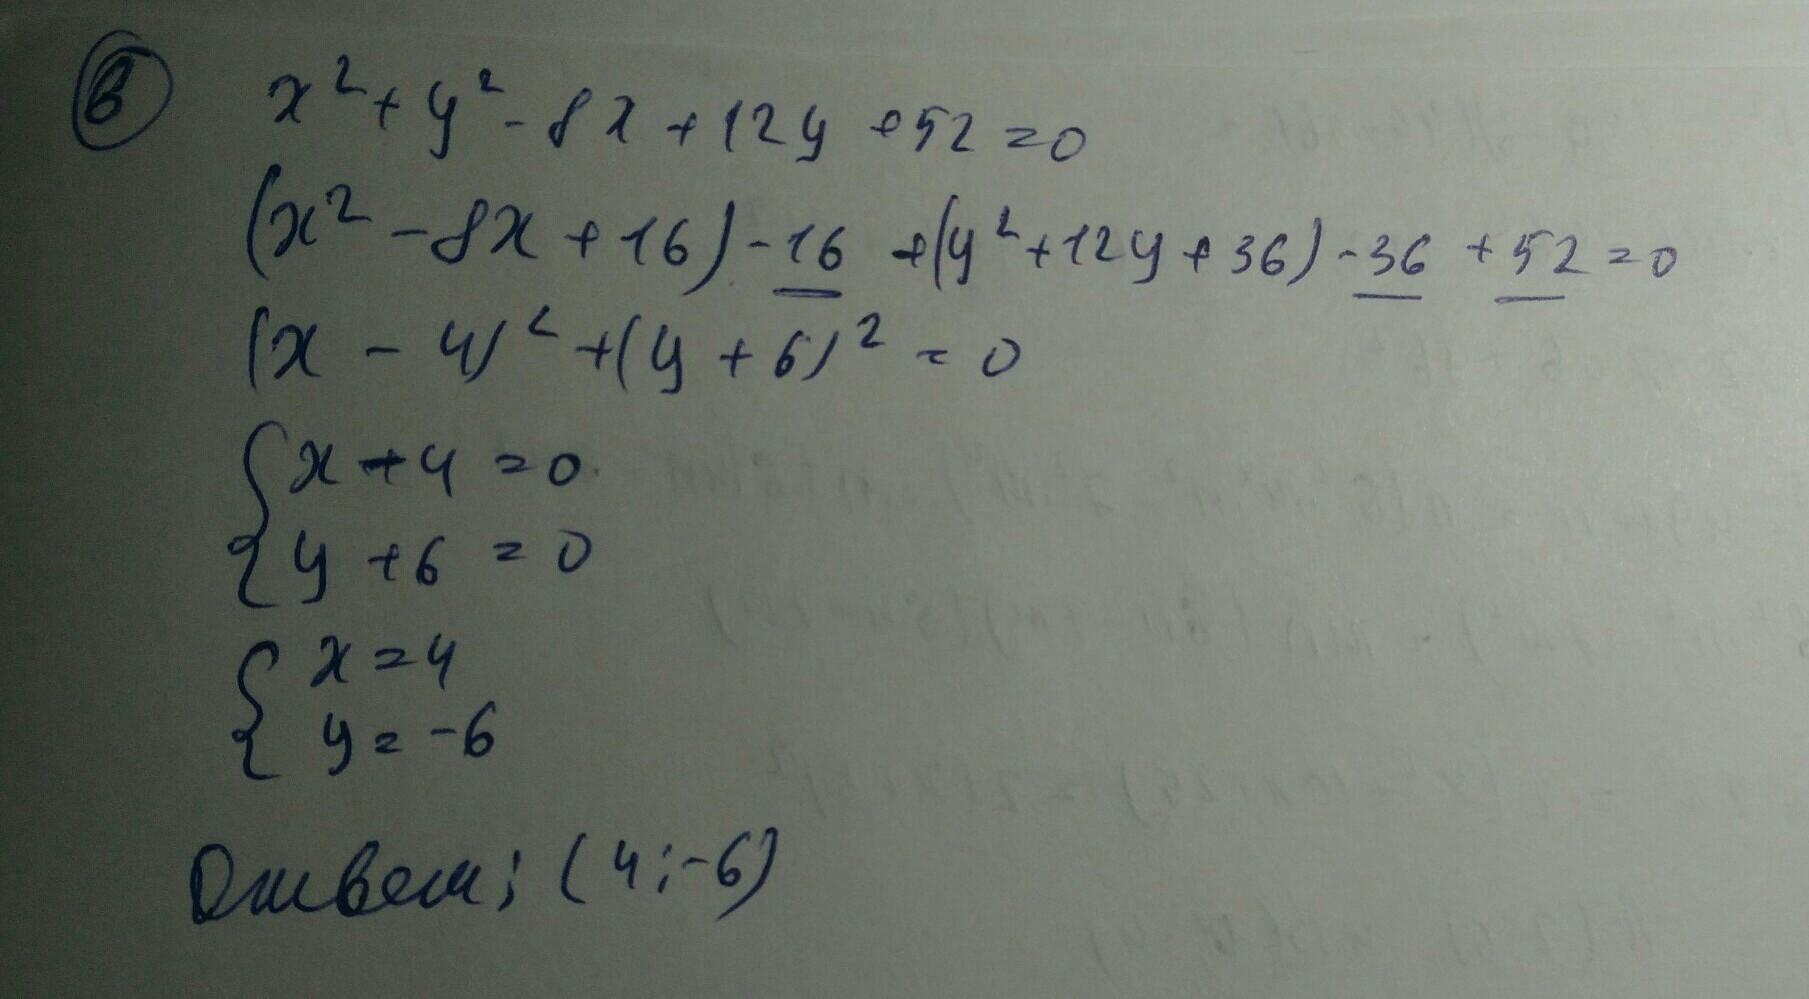 в
x² + y² - 8x + 12y + 52 = 0
(x² - 8x + 16) - 16 + (y² + 12y + 36) - 36 + 52 = 0
(x - 4)² + (y + 6)² = 0
{ x + 4 = 0
y + 6 = 0
{ x = 4
y = -6
Ответ: (4; -6)